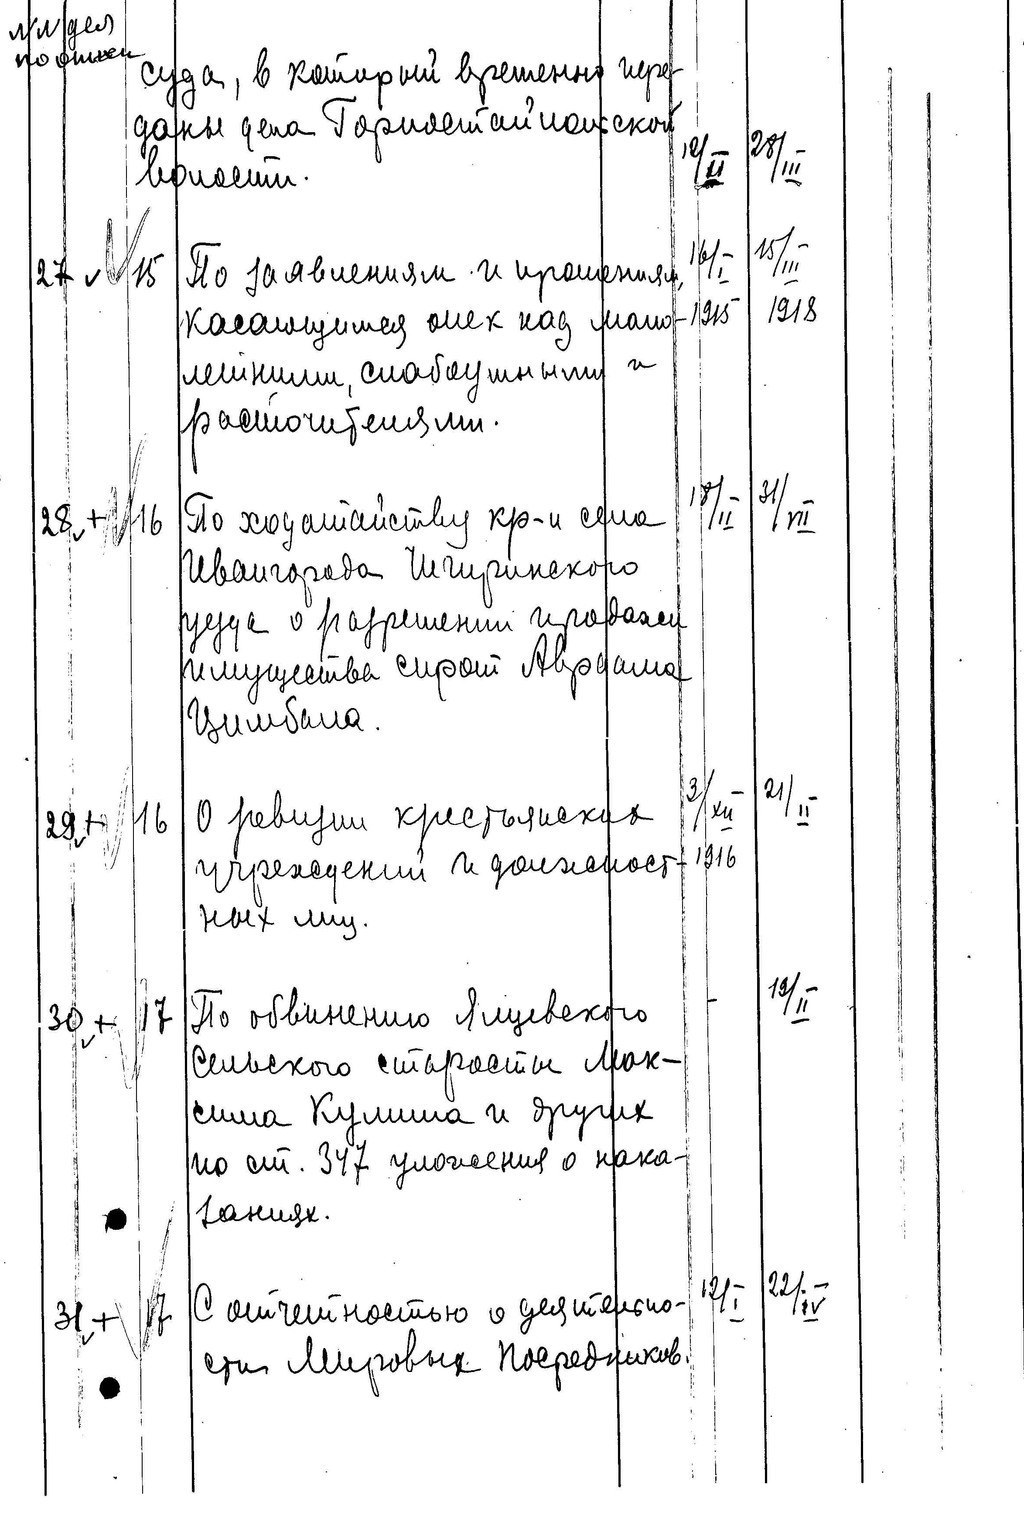 NN дел
по описи
суда, в который временно пере-
даны дела Горностайпольской
волости. 12/II 28/III
27 15 По заявлениям и прошениям, 16/I 15/III
касающимся опек над мало- 1915 1918
летними, слабоумными и
расточителями.
28 + 16 По ходатайству кр-и села 18/II 31/VII
Ивангорода Чигиринского
уезда о разрешении продажи
имущества сирот Авраама
Цимбала.
29 + 16 О ревизии крестьянских 3/XII 21/II
учреждений и должност- 1916
ных лиц.
30 + 17 По обвинению Ялцевского - 19/II
сельского старосты Мак-
сима Кулиша и других
по ст. 347 уложения о нака-
заниях.
31 + 17 С отчетностью о деятельно- 12/I 22/IV
сти Мировых Посредников.